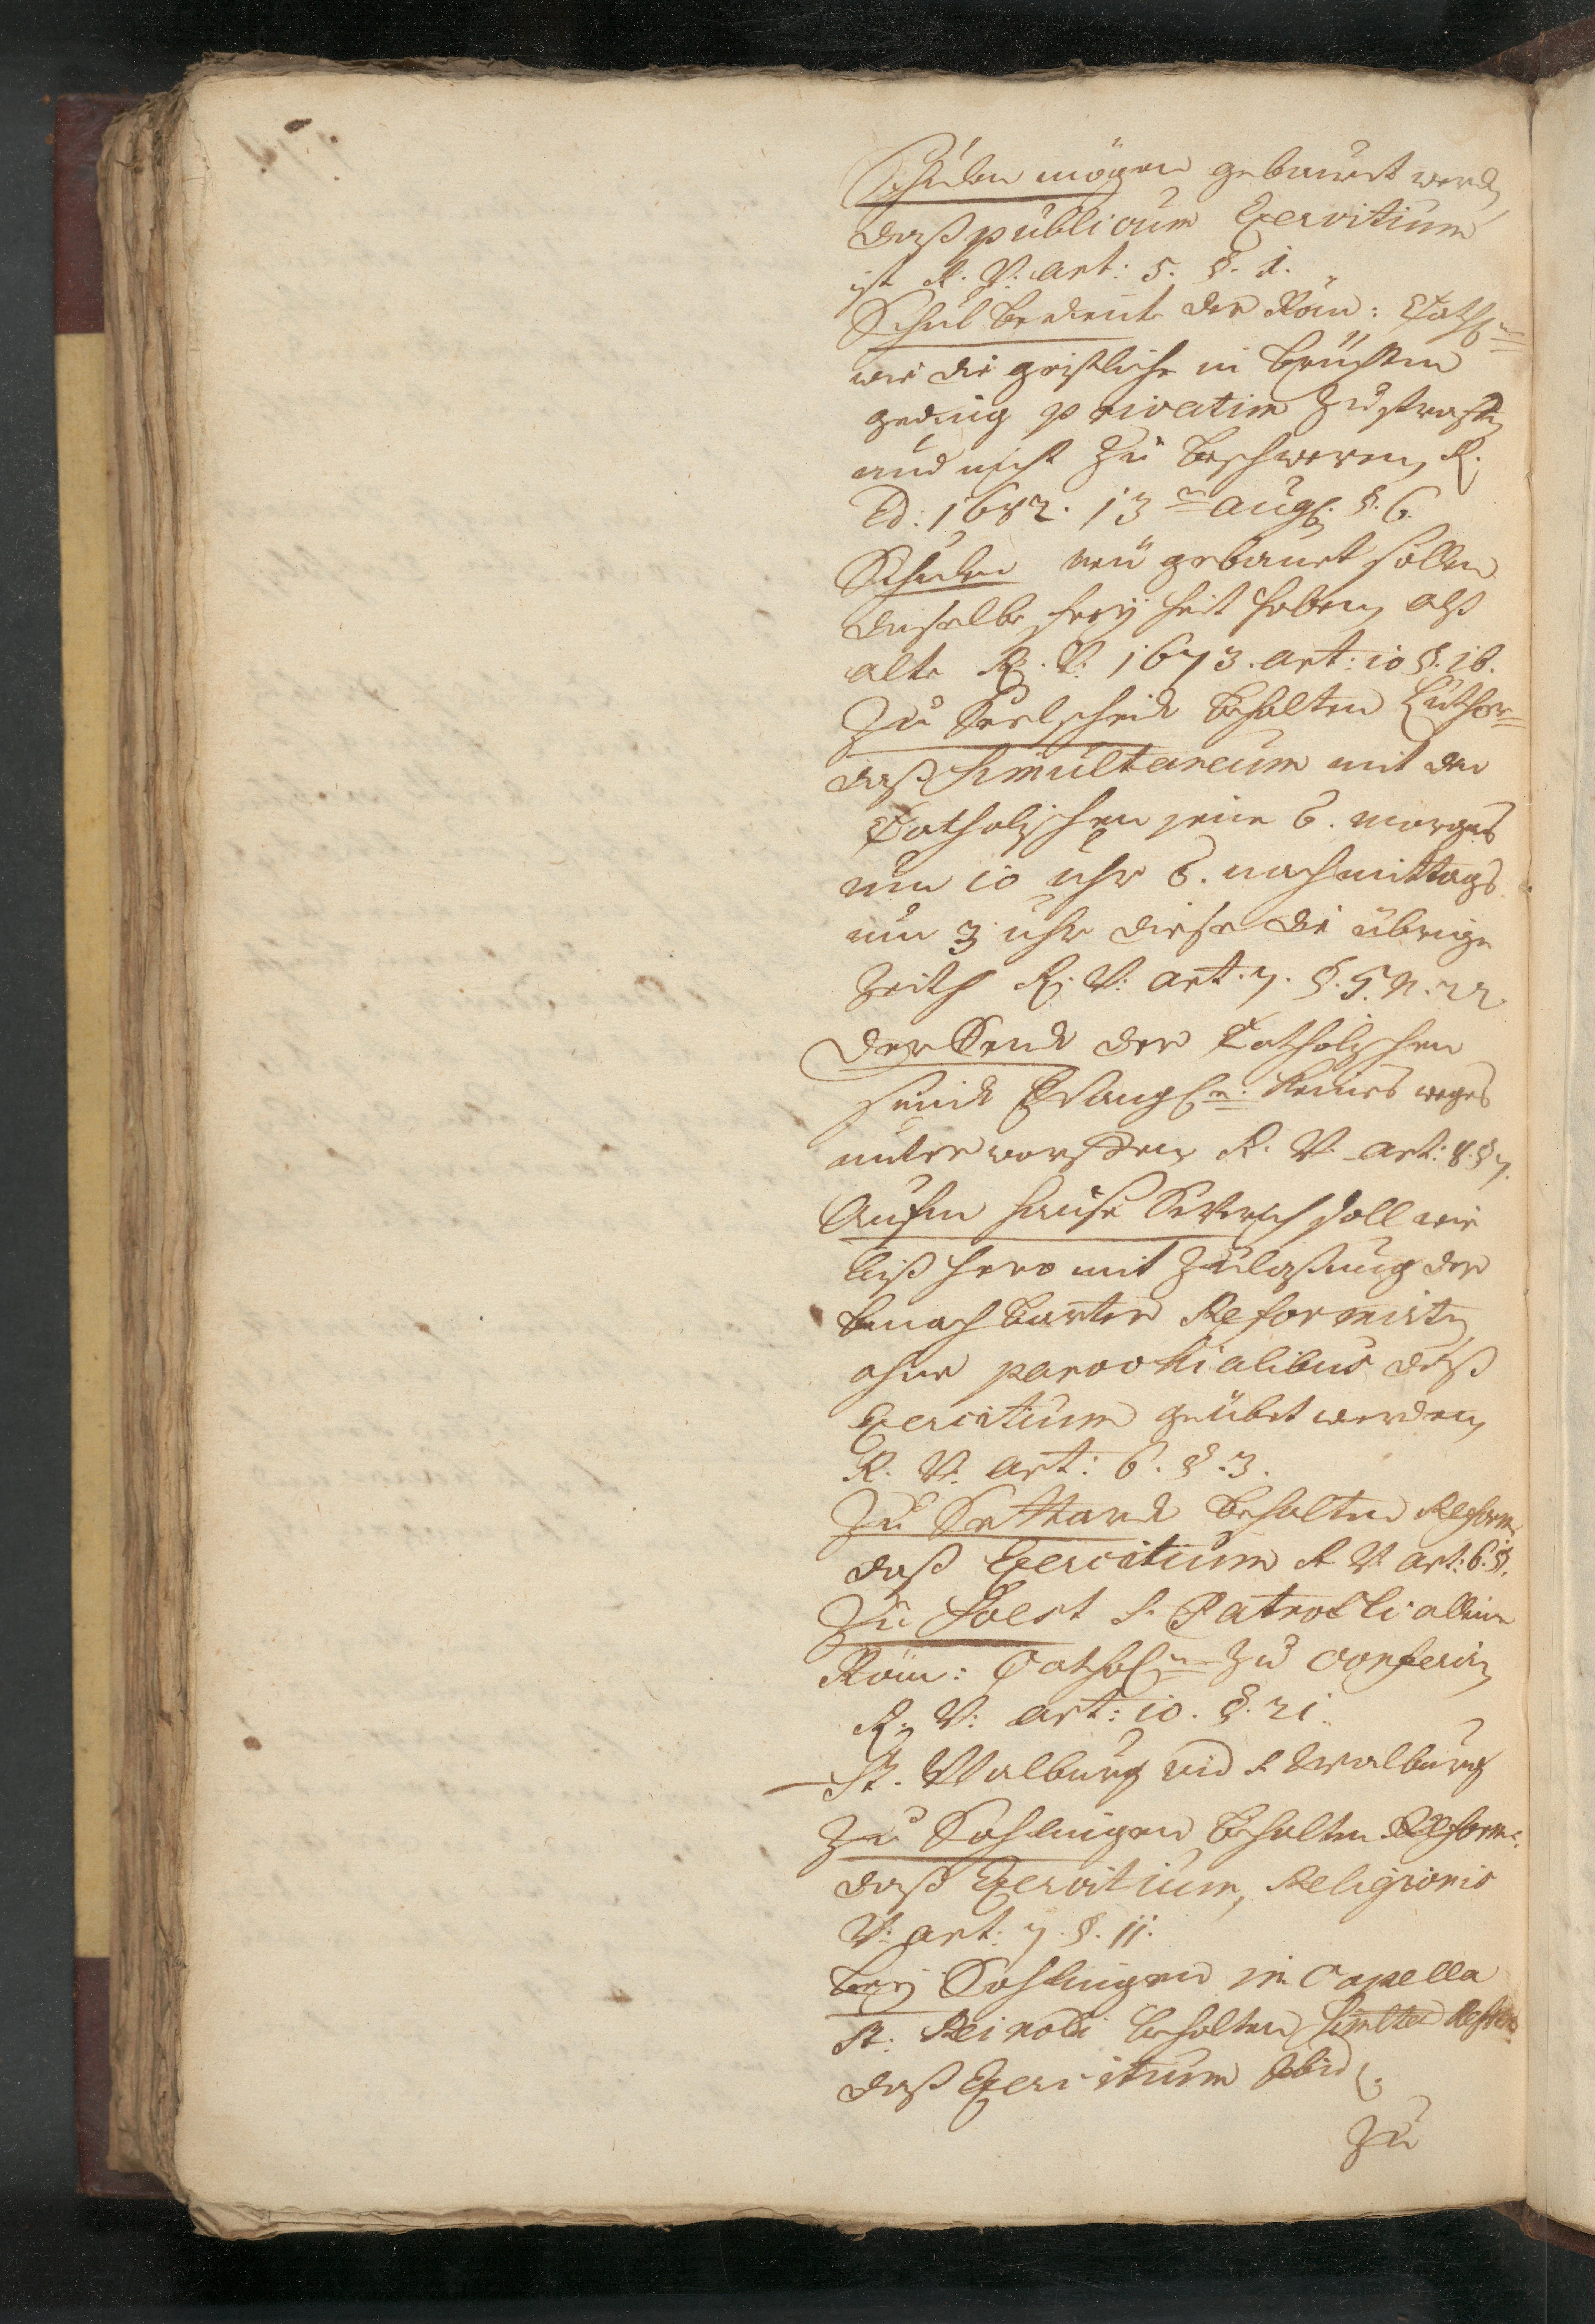 Schulen mögen gebauet werd
daß publicum Exercitium
ist R. V. art: 5. §. 1.
Schul bediente der Röm: Cathn
wie die geistliche in brüchten
geding privatim zu straffen
und nicht zu beschweren, R.
Ed: 1682. 13n aug. §. 6.
Schulen neu gebauet sollen
dieselbe freyheit haben, alß
alte R. V. 1673. art: 10 §. 16.
Zu Seelscheid behalten Luther
daß Simultaneum mit den
Catholischen jene 6. morgens
um 10 uhr 6. nachmittags
um 3 uhr diese die übrige
Zeith R. V: art. 7. §. 5. N. 22.
Der Send der Catholischen
seind Evangln. Keines weges
unterworffen R. V. art: 8. § 7.
Aufm hause soll wie
biß hero mit Zulaßung der
benachbarten Reformirten
ohne parochialibus daß
Exercitium geübet werden,
R. V. art: 6. §. 3.
Zu Sittard behalten Reform.
daß Exercitium R V. art: 6. §.
Zu Soest S. Patrocli allein
Röm: Catholn zu conferirn
R. V: art: 10. §. 21.
St. Walburg vid S Walburg
Zu Sohlingen behalten Reform.
daß Exercitium, Religionis
V: art: 7. §. 11.
bey Sohlingen in Capella
St. Reinoldi behalten Reform
daß Exercitium Ibid.
Zu